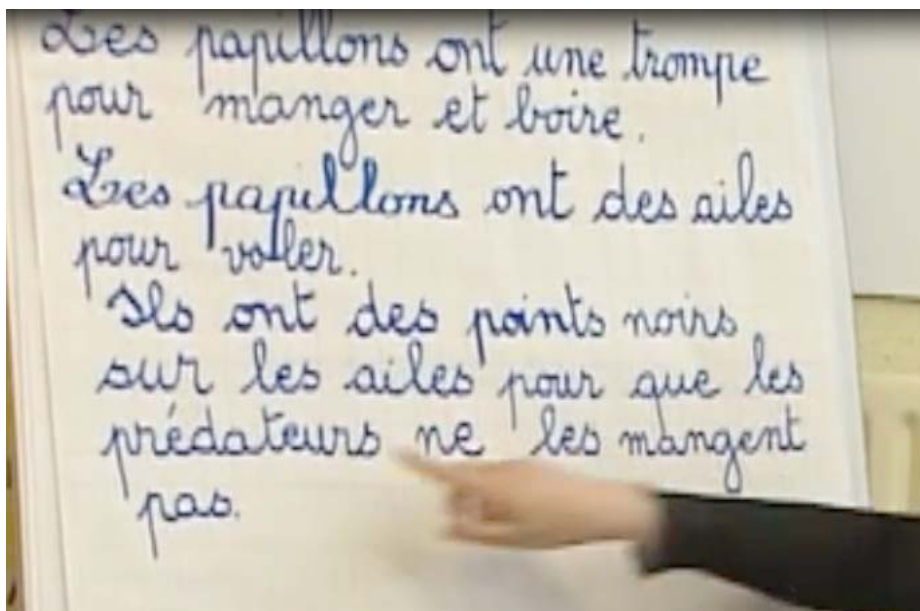 Les papillons ont une trompe
pour manger et boire.
Les papillons ont des ailes
pour voler.
Ils ont des points noirs
sur les ailes pour que les
prédateurs ne les mangent
pas.